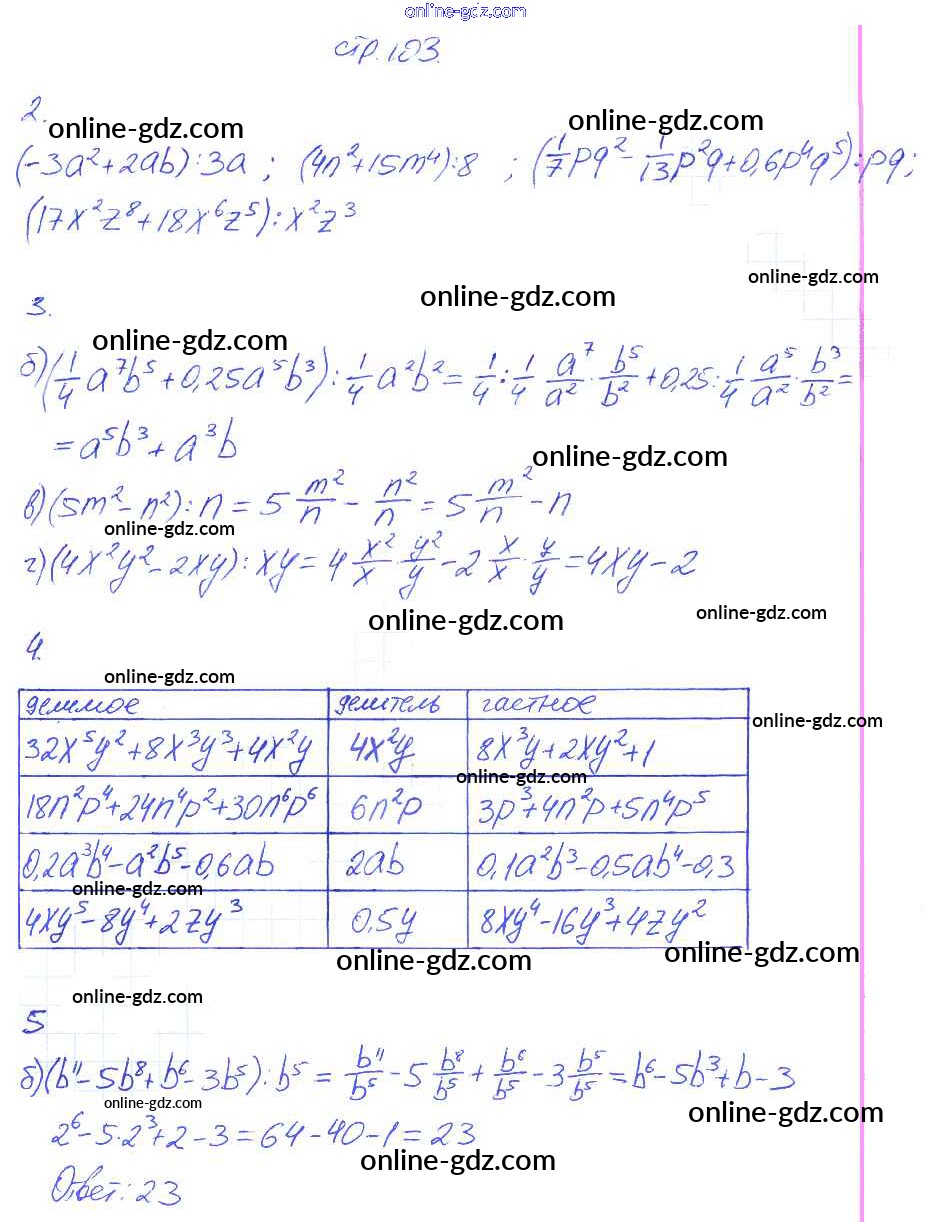 online-gdz.com
стр. 103.
2.
online-gdz.com online-gdz.com
(-3a²+2ab):3a; (4n²+15m⁴):8; (1/7pq²-1/13p²q+0,6p⁴q⁵):pq;
(17x²z⁸+18x⁶z⁵):x²z³
online-gdz.com
online-gdz.com
3.
online-gdz.com
б)(1/4a⁷b⁵+0,25a⁵b³):1/4a²b²=1/4:1/4 a⁷/a²·b⁵/b²+0,25:1/4 a⁵/a²·b³/b²=
=a⁵b³+a³b
online-gdz.com
в)(5m²-n²):n=5 m²/n - n²/n=5 m²/n - n
online-gdz.com
г)(4x²y²-2xy):xy=4 x²/x·y²/y-2 x/x·y/y=4xy-2
online-gdz.com
online-gdz.com
4.
online-gdz.com
делимое делитель частное
online-gdz.com
32x⁵y²+8x³y³+4x²y 4x²y 8x³y+2xy²+1
online-gdz.com
18n²p⁴+24n⁴p²+30n⁶p⁶ 6n²p 3p³+4n²p+5n⁴p⁵
0,2a³b⁴-a²b⁵-0,6ab 2ab 0,1a²b³-0,5ab⁴-0,3
online-gdz.com
4xy⁵-8y⁴+2zy³ 0,5y 8xy⁴-16y³+4zy²
online-gdz.com online-gdz.com
online-gdz.com
5
б)(b¹¹-5b⁸+b⁶-3b⁵):b⁵=b¹¹/b⁵-5 b⁸/b⁵+b⁶/b⁵-3 b⁵/b⁵=b⁶-5b³+b-3
online-gdz.com online-gdz.com
2⁶-5·2³+2-3=64-40-1=23
online-gdz.com
Ответ: 23